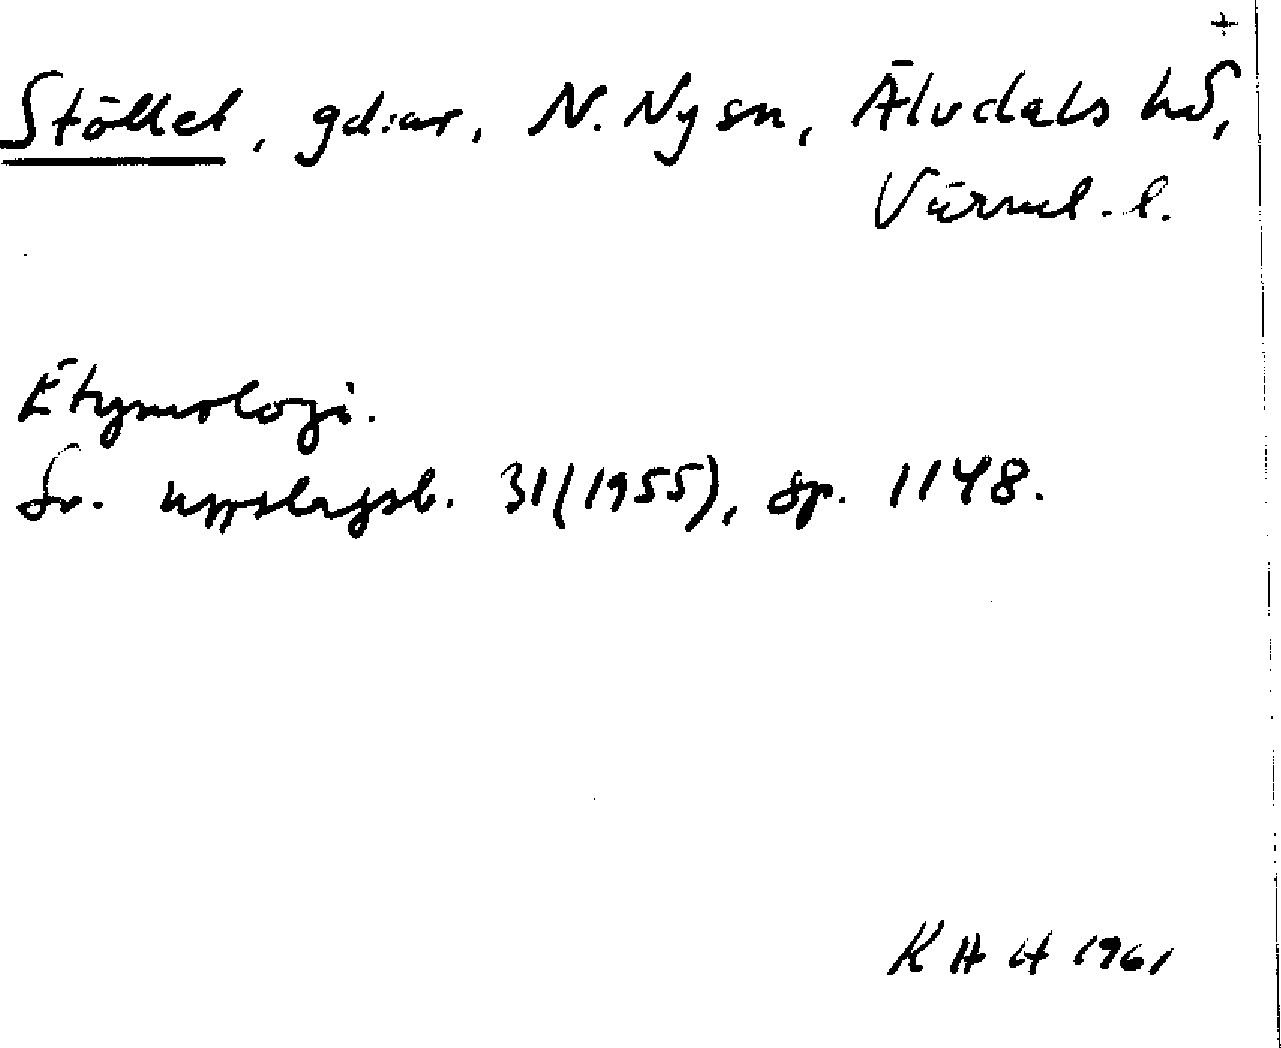 +
Stöllet, gd:ar, N. Ny sn, Älvdals hd,
Värml. l.
Etymologi.
Sv. uppslagsb. 31 (1955), sp. 1148.
KHH 1961